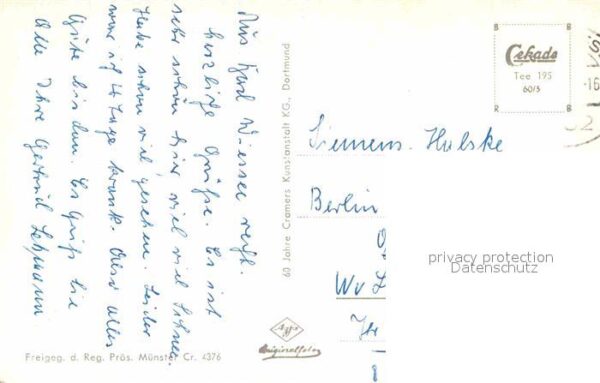 Aus Bad Wiessee recht
herzliche Grüße. Es ist
sehr schön hier viel viel Schnee.
Habe schon viel gesehen. Leider
war ich 4 Tage krank. Sonst alles
Gute bis dann. Es grüßt Sie
alle Ihre Gertrud Lehmann
60 Jahre Cramers Kunstanstalt KG., Dortmund
Cekade
Tee 195
60/5
Siemens. Halske
Berlin
Wv
privacy protection
Datenschutz
Agfa
Originalfoto
Freigeg. d. Reg. Präs. Münster Cr. 4376